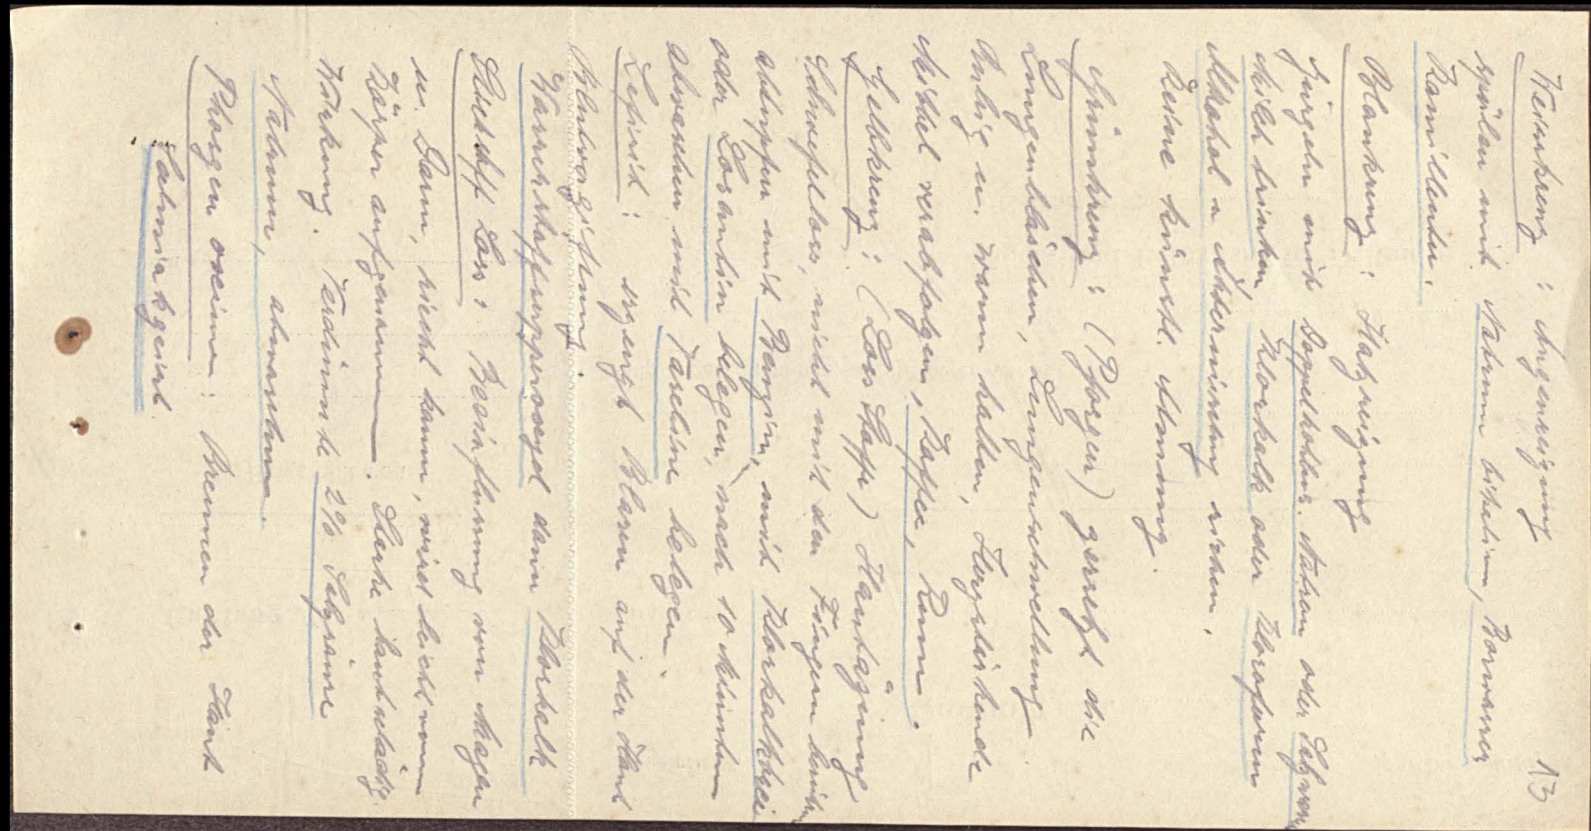 13
Weisskreuz: Augenreizung
spülen mit Natrum bikolium, Borwasser
Kamillentee.
Blaukreuz: Halsreizung
gurgeln mit Doppelkohlens. Natron oder Salzwas
Milch trinken, Klorkalk oder Kloroform
Alkohol u Äthermischung riechen.
Keine künstl. Atmung.
Grünkreuz: (Phosgen) zersetzt die
Lungenbläschen, Lungenschwellung
Ruhig u. warm halten, Herzstärkende
Mittel verabfolgen, Kaffee, Rum.
Gelbkreuz: (Los Stoffe) Hautätzung
Schwefellos, nicht mit den Fingern
abtupfen mit Benzin, mit Klorkalkbrei
oder Losantin belegen, nach 10 Minuten
abwaschen mit Vaseline belegen.
Lefisit: erzeugt Blasen auf der Haut
Blutvergiftung.
Wasserstoffsupperoxyd dann Klorkalk
Stickstoff Los: Beeinflussung von Magen
u. Darm, riecht kaum, wird leicht vom
Körper aufgenommen. Starke hautschädg.
Wirkung. Verdünnte 2% Salzsäure
Natrum, abwaschen.
Phosgen oxeime: Brennen der Haut
Salmiakgeist